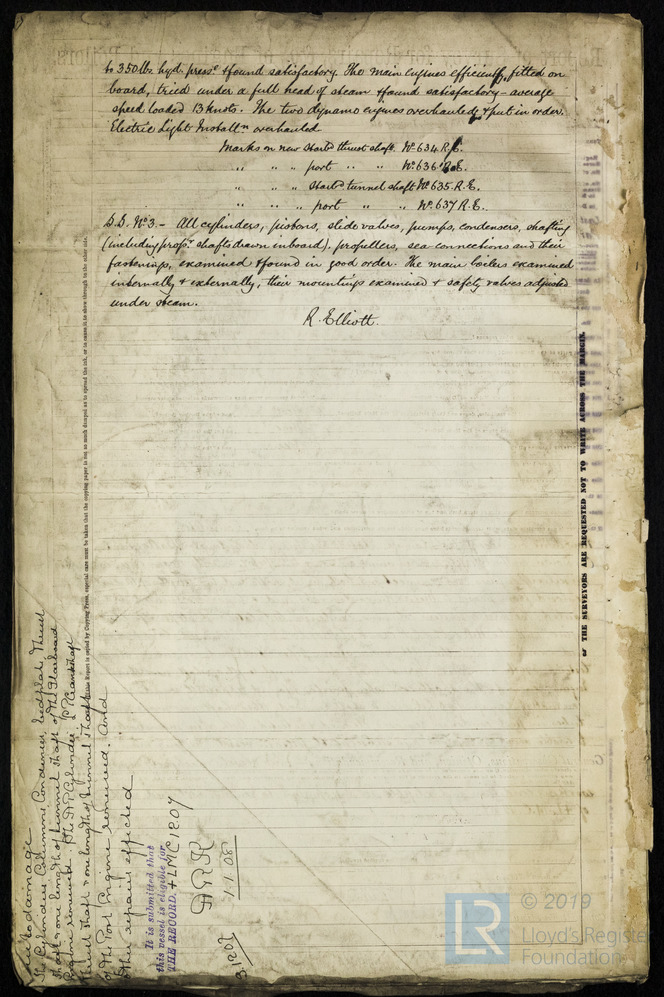 to 350 lbs hyd. press.e & found satisfactory. The main engines efficiently fitted on
board, tried under a full head of steam & found satisfactory - average
speed loaded 13 knots. The two dynamo engines overhauled & put in order.
Electric Light Install.n overhauled.
Marks on new starb.d thrust shaft. No. 634. R.E.
" " " port " " No. 636 R.E.
" " " starb.d tunnel shaft No. 635. R.E.
" " " port " " No. 637 R.E.
S.S. No. 3. - All cylinders, pistons, slide valves, pumps, condensers, shafting
(including prop.r shafts drawn inboard), propellers, sea connections and their
fastenings, examined & found in good order. The main boilers examined
internally & externally, their mountings examined & safety valves adjusted
under steam.
R. Elliott.
THE SURVEYORS ARE REQUESTED NOT TO WRITE ACROSS THE MARGIN.
Report is copied by Copying Press, especial care must be taken that the copying paper is not so much damped as to spread the ink, or to cause it to show through to the other side.
to damage
the Cylinders Columns Condenser bedplate, Thrust
shaft & one length of tunnel shaft of the Starboard
Engine renewed. The H.P. Cylinder L.P. Crankshaft
thrust shaft & one length of tunnel shaft
of the Port Engine renewed. And
other repairs effected
It is submitted that
this vessel is eligible for
THE RECORD. + LMC 12 07
1.1.08
3.12.07
LR
© 2019
Lloyd's Register
Foundation